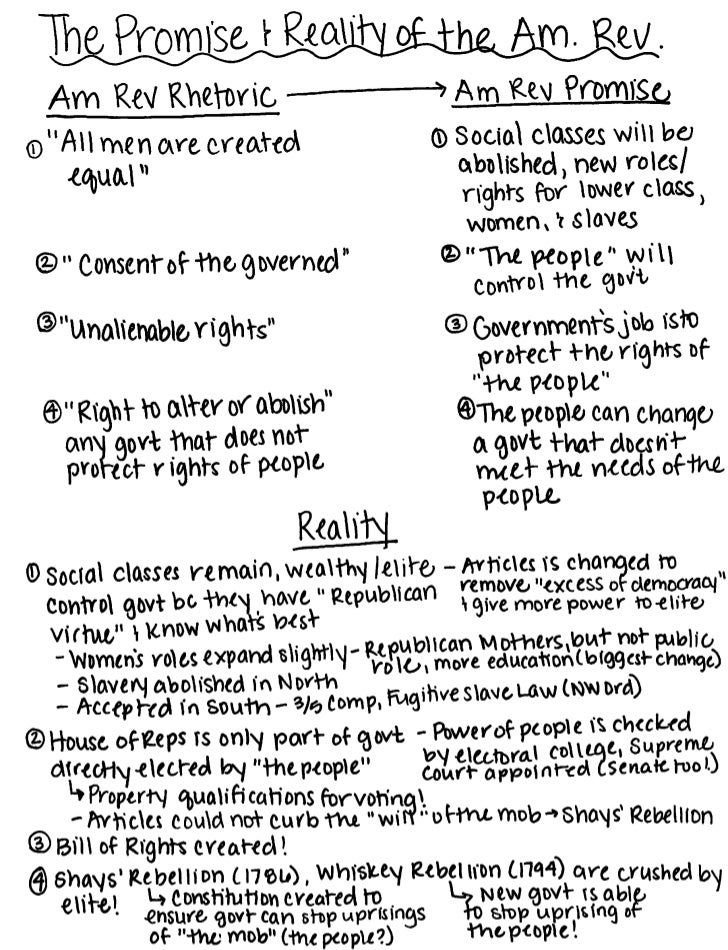 The Promise & Reality of the Am. Rev.
Am Rev Rhetoric → Am Rev Promise
① "All men are created
equal"
① Social classes will be
abolished, new roles/
rights for lower class,
women, & slaves
② "Consent of the governed"
② "The people" will
control the gov't
③ "Unalienable rights"
③ Government's job is to
protect the rights of
"the people"
④ "Right to alter or abolish"
any govt that does not
protect rights of people
④ The people can change
a govt that doesn't
meet the needs of the
people
Reality
① Social classes remain, wealthy/elite
control govt bc they have "Republican
virtue" & know what's best
- Articles is changed to
remove "excess of democracy"
& give more power to elite
- Women's roles expand slightly - Republican Mothers, but not public
role, more education (biggest change)
- Slavery abolished in North
- Accepted in South - 3/5 Comp, Fugitive Slave Law (NW Ord)
② House of Reps is only part of govt
directly elected by "the people"
- Power of people is checked
by electoral college, Supreme
Court appointed (Senate too!)
↳ Property qualifications for voting!
- Articles could not curb the "will" of the mob → Shays' Rebellion
③ Bill of Rights created!
④ Shays' Rebellion (1786), Whiskey Rebellion (1794) are crushed by
elite!
↳ Constitution created to
ensure govt can stop uprisings
of "the mob" (the people?)
↳ New govt is able
to stop uprising of
the people!